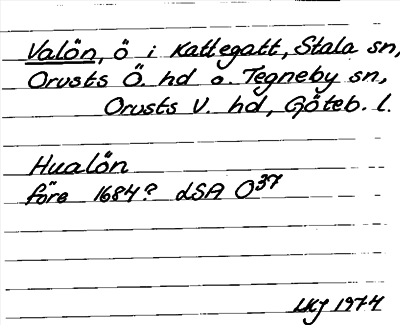 Valön, ö i Kattegatt, Stala sn,
Orusts Ö. hd o. Tegneby sn,
Orusts V. hd, Göteb. l.
Hualön
före 1684? LSA O37
LKJ 1974